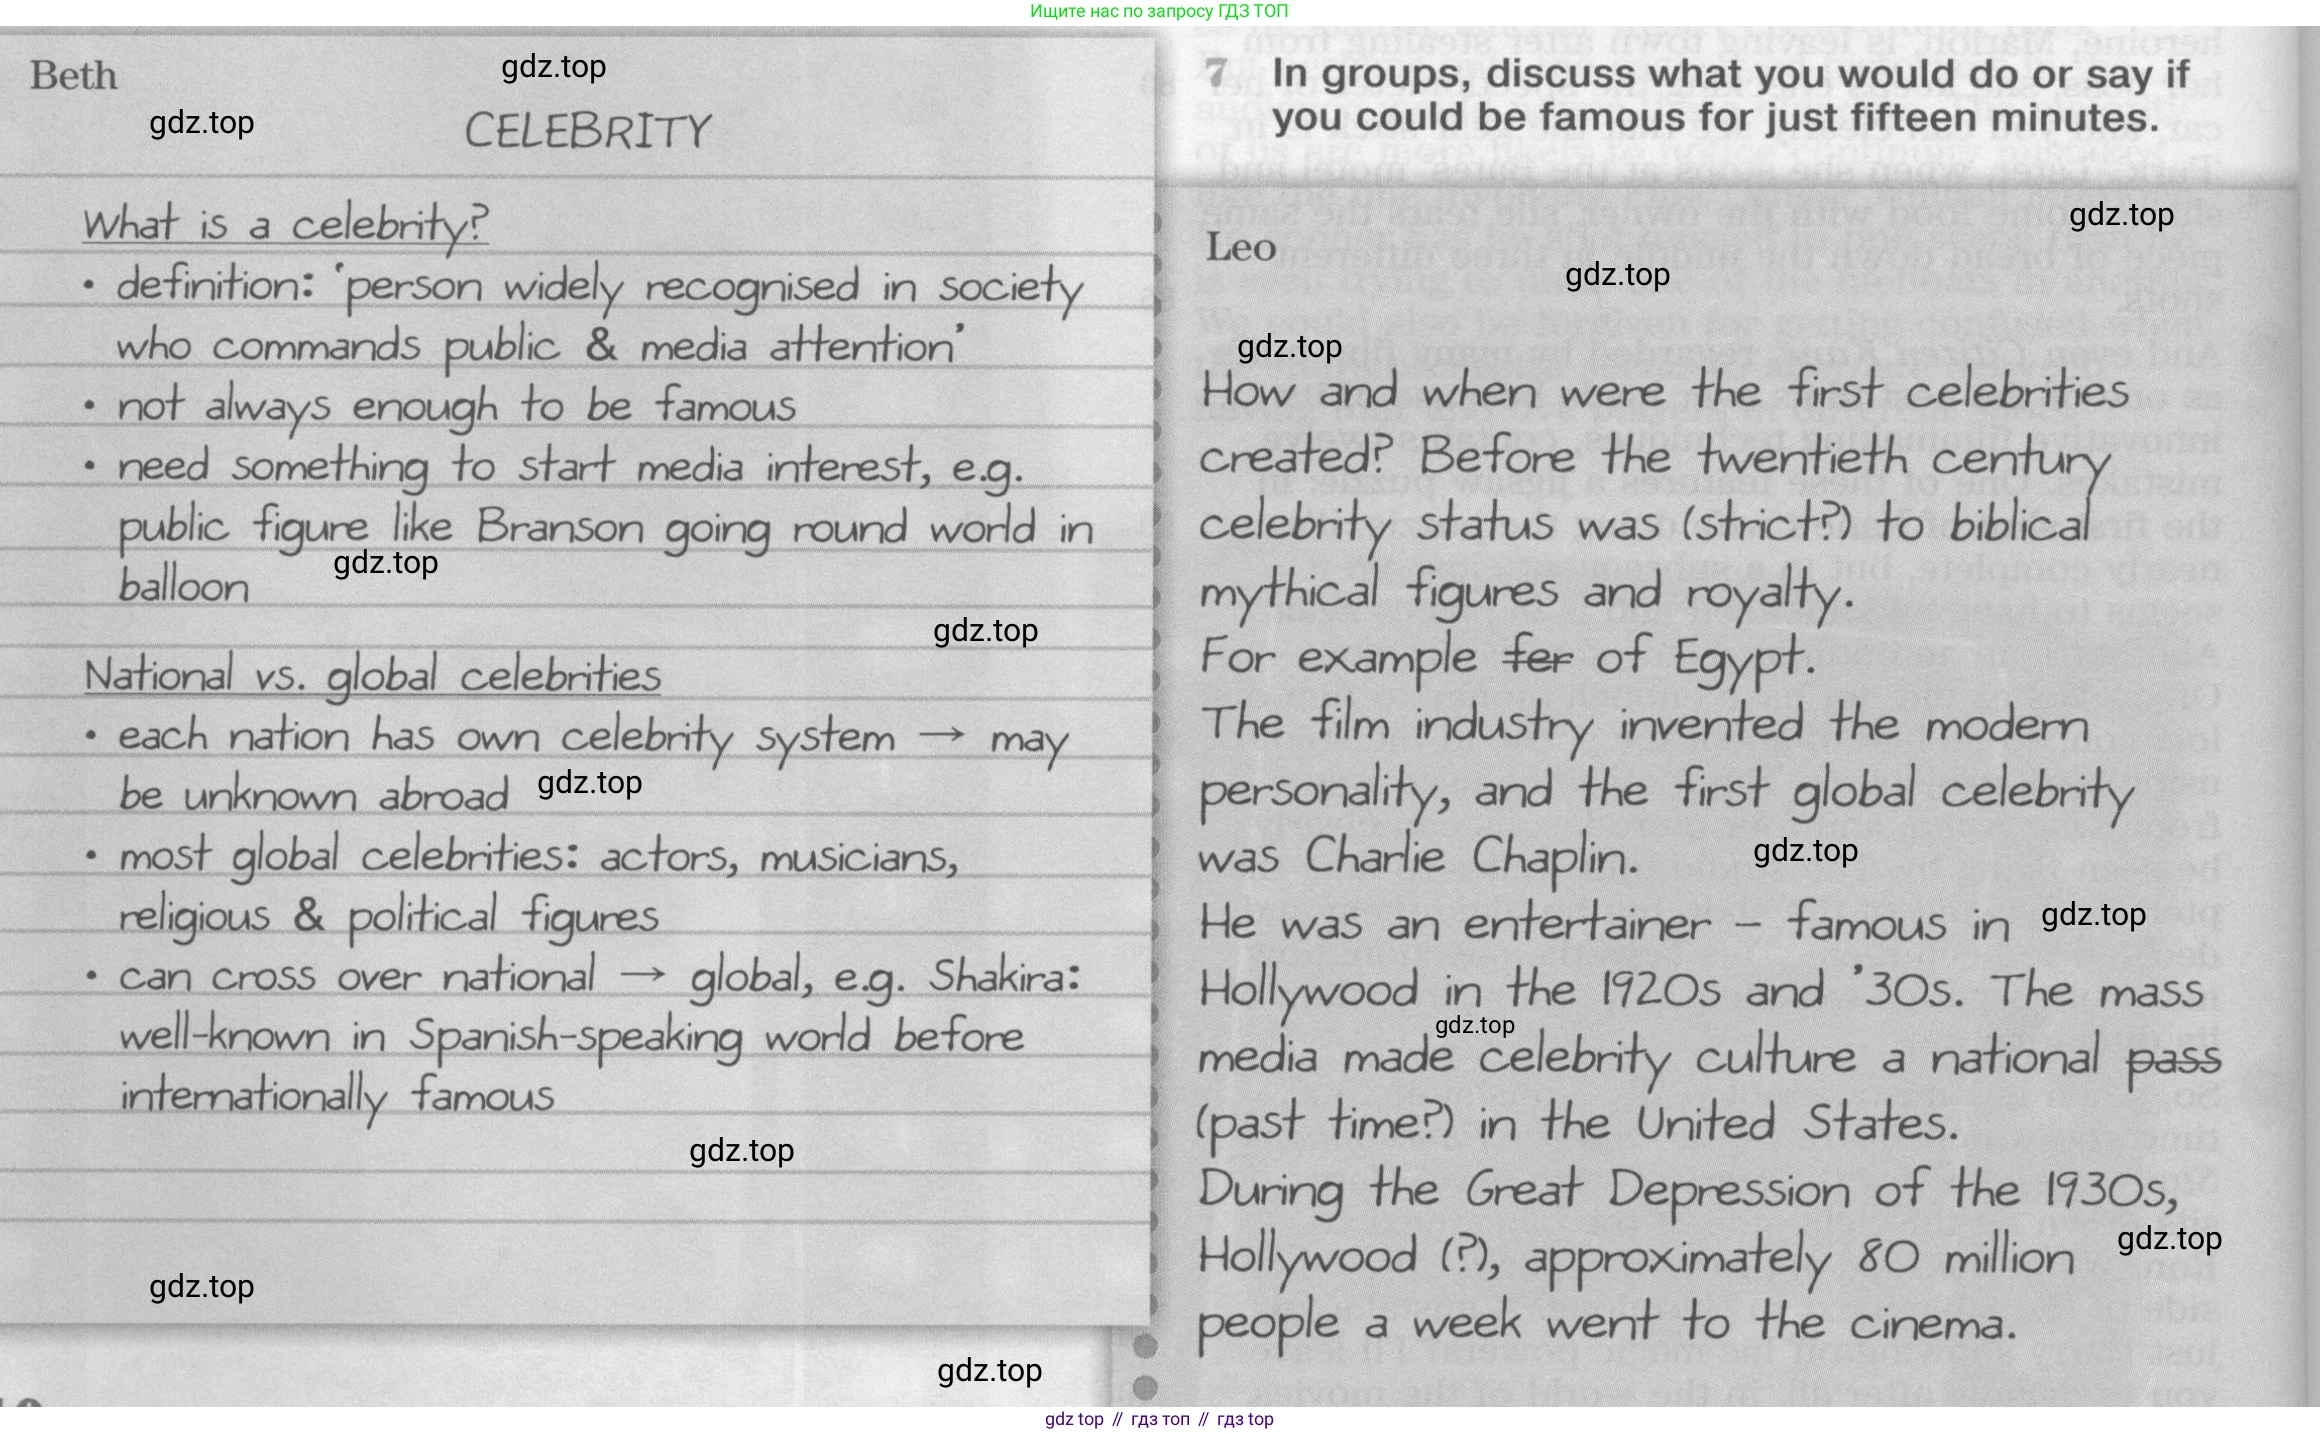 Ищите нас по запросу ГДЗ ТОП
Beth
gdz.top
gdz.top
CELEBRITY
What is a celebrity?
• definition: 'person widely recognised in society
who commands public & media attention'
• not always enough to be famous
• need something to start media interest, e.g.
public figure like Branson going round world in
gdz.top
balloon
gdz.top
National vs. global celebrities
• each nation has own celebrity system → may
be unknown abroad
gdz.top
• most global celebrities: actors, musicians,
religious & political figures
• can cross over national → global, e.g. Shakira:
well-known in Spanish-speaking world before
internationally famous
gdz.top
gdz.top
gdz.top
7 In groups, discuss what you would do or say if
you could be famous for just fifteen minutes.
gdz.top
Leo
gdz.top
gdz.top
How and when were the first celebrities
created? Before the twentieth century
celebrity status was (strict?) to biblical
mythical figures and royalty.
For example fer of Egypt.
The film industry invented the modern
personality, and the first global celebrity
was Charlie Chaplin.
gdz.top
He was an entertainer – famous in
gdz.top
Hollywood in the 1920s and '30s. The mass
gdz.top
media made celebrity culture a national pass
(past time?) in the United States.
During the Great Depression of the 1930s,
gdz.top
Hollywood (?), approximately 80 million
people a week went to the cinema.
gdz top // гдз топ // гдз top